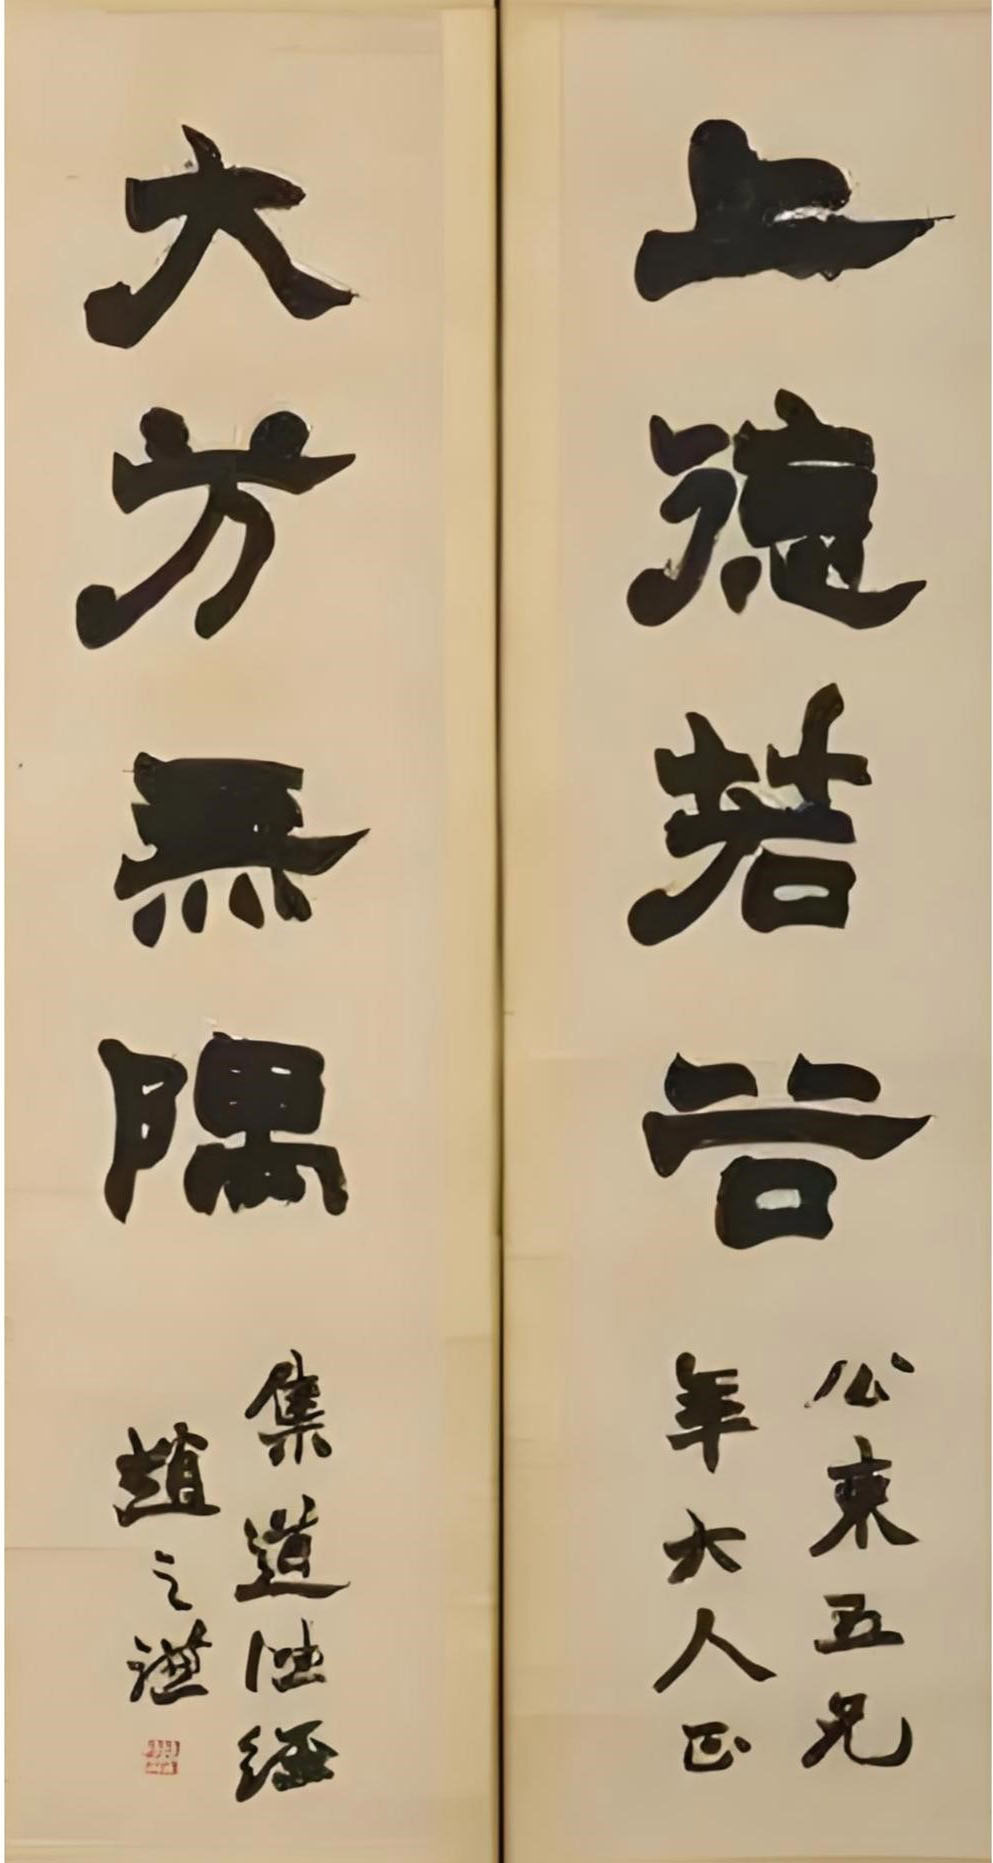 上德若谷
公束五兄
年大人正
大方無隅
集道德經
趙之謙